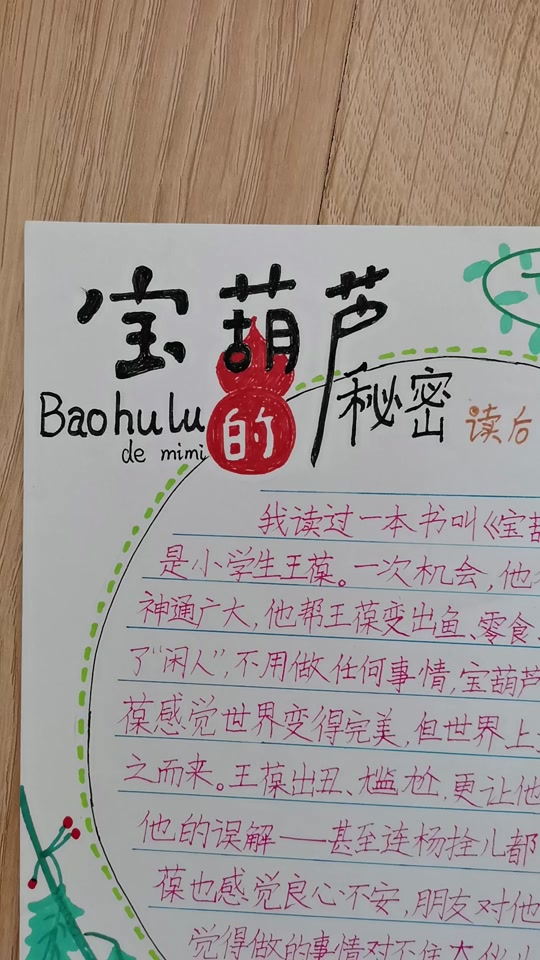 宝葫芦
Baohulu 的 秘密 读后
de mimi
我读过一本书叫《宝葫
是小学生王葆。一次机会,他
神通广大,他帮王葆变出鱼、零食、
了“闲人”,不用做任何事情,宝葫芦
葆感觉世界变得完美,但世界上
之而来。王葆出丑、尴尬,更让他
他的误解——甚至连杨拴儿都
葆也感觉良心不安,朋友对他
觉得做的事情对不住大伙儿